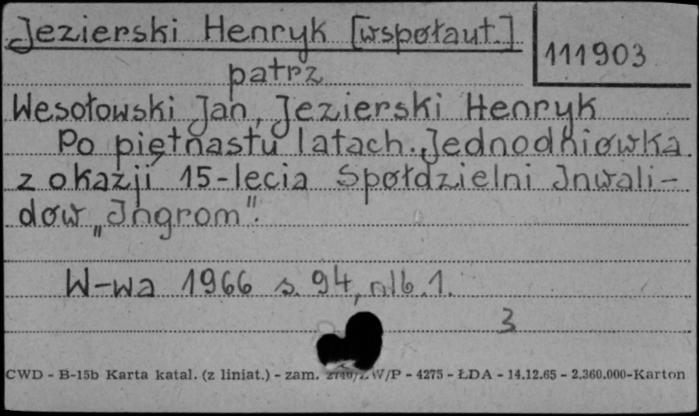 Jezierski Henryk [współaut.]
111903
patrz
Wesołowski Jan, Jezierski Henryk
Po piętnastu latach. Jednodniówka
z okazji 15-lecia Spółdzielni Inwali-
dów „Ingrom".
W-wa 1966 s. 94, nlb. 1.
3
CWD - B-15b Karta katal. (z liniat.) - zam. W/P - 4275 - ŁDA - 14.12.65 - 2.360.000-Karton